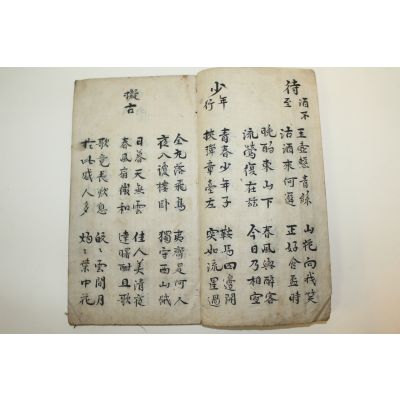 待酒不至
玉壺繫青絲
沽酒來何遲
山花向我笑
正好含盃時
晚酌東山下
流鶯復在茲
春風與醉客
今日乃相宜
少年行
青春少年子
挾彈章臺左
鞍馬四邊開
突如流星過
金丸落飛鳥
夜入瓊樓臥
夷齊是何人
獨守西山餓
擬古
日暮天無雲
春風扇微和
佳人美清夜
達曙酣且歌
歌竟長歎息
持此感人多
皎〻雲間月
灼〻葉中花